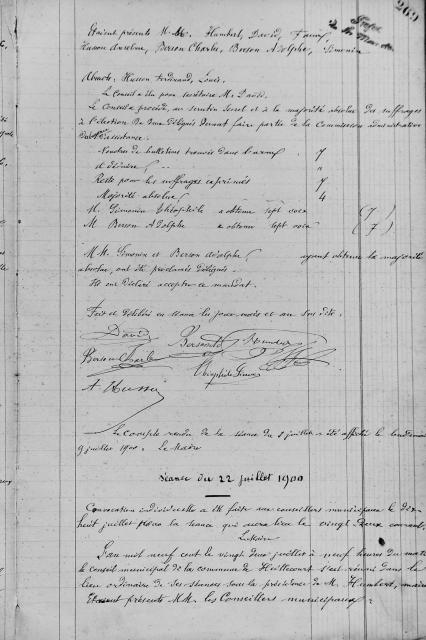 269
Etaient présents M. M. Humbert, David, Faury,
Husson Anselme, Berson Charles, Berson Adolphe, Simonin
Absents: Husson Ferdinand, Louis.
Le Conseil a élu pour secrétaire M. David.
Le Conseil a procédé, au scrutin secret et à la majorité absolue des suffrages
à l'élection de deux délégués devant faire partie de la Commission administrative
du Bureau d'assistance.
Nombre de bulletins trouvés dans l'urne 7
à déduire "
Reste pour les suffrages exprimés 7
Majorité absolue 4
M. Simonin Théophile a obtenu sept voix (7)
M. Berson Adolphe a obtenu sept voix (7)
M.M. Simonin et Berson Adolphe ayant obtenu la majorité
absolue, ont été proclamés délégués.
Ils ont déclaré accepter ce mandat.
Fait et délibéré en séance les jour, mois et an susdits.
David Berson Ad Humbert
Berson Charles Théophile Simonin
A Husson
Le compte rendu de la séance du 8 juillet a été affiché le lendemain
9 juillet 1900. Le Maire
Séance du 22 juillet 1900
Convocation individuelle a été faite aux conseillers municipaux le dix
huit juillet pour la séance qui aura lieu le vingt deux courant.
Le Maire
L'an mil neuf cent le vingt deux juillet à neuf heures du matin
le conseil municipal de la commune de Huilliécourt s'est réuni dans le
lieu ordinaire de ses séances sous la présidence de M. Humbert, maire
Etaient présents MM. les Conseillers municipaux: